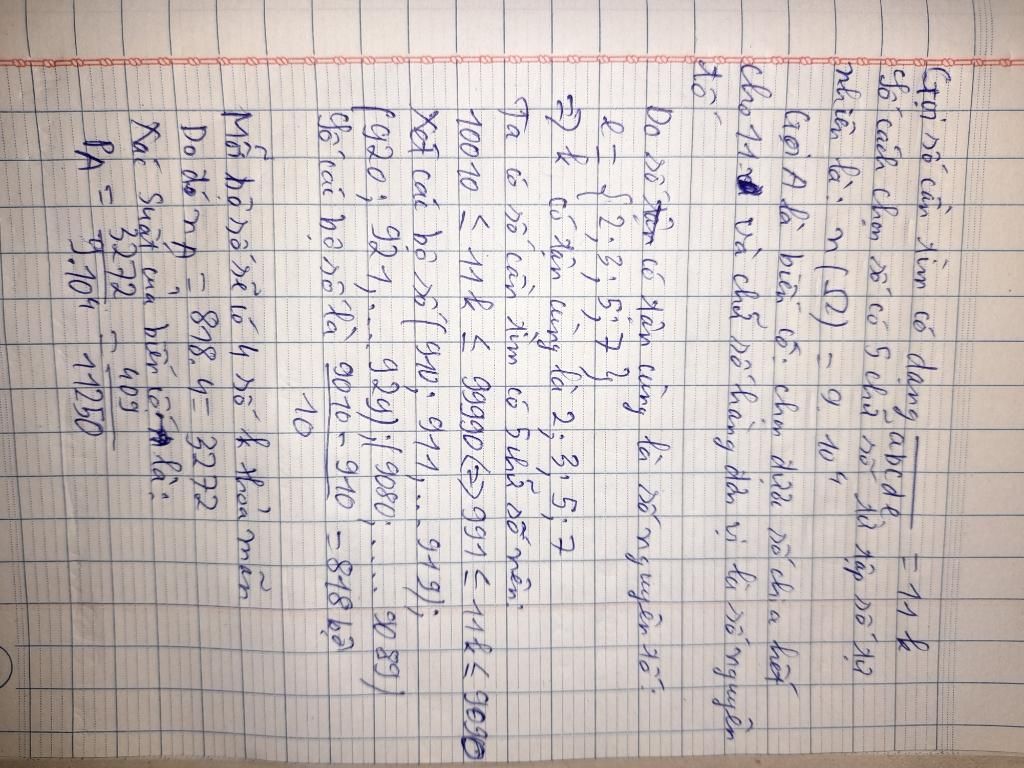 Gọi số cần tìm có dạng abcde = 11k
Số cách chọn số có 5 chữ số từ tập số tự
nhiên là: n(Ω) = 9.10⁴
Gọi A là biến cố: chọn được số chia hết
cho 11 và chữ số hàng đơn vị là số nguyên
tố
Do số có tận cùng là số nguyên tố:
e = {2; 3; 5; 7}
=> k có tận cùng là 2; 3; 5; 7
Ta có số cần tìm có 5 chữ số nên:
10010 ≤ 11k ≤ 99990 <=> 991 ≤ 11k ≤ 9090
Xét các bộ số (910; 911; ... 919);
(920; 921; ... 929); (9080; ... 9089)
Số các bộ số là 9010 - 910 / 10 = 818 bộ
Mỗi bộ số sẽ có 4 số k thoả mãn
Do đó nA = 818.4 = 3272
Xác suất của biến cố A là:
PA = 3272 / 9.10⁴ = 409 / 11250